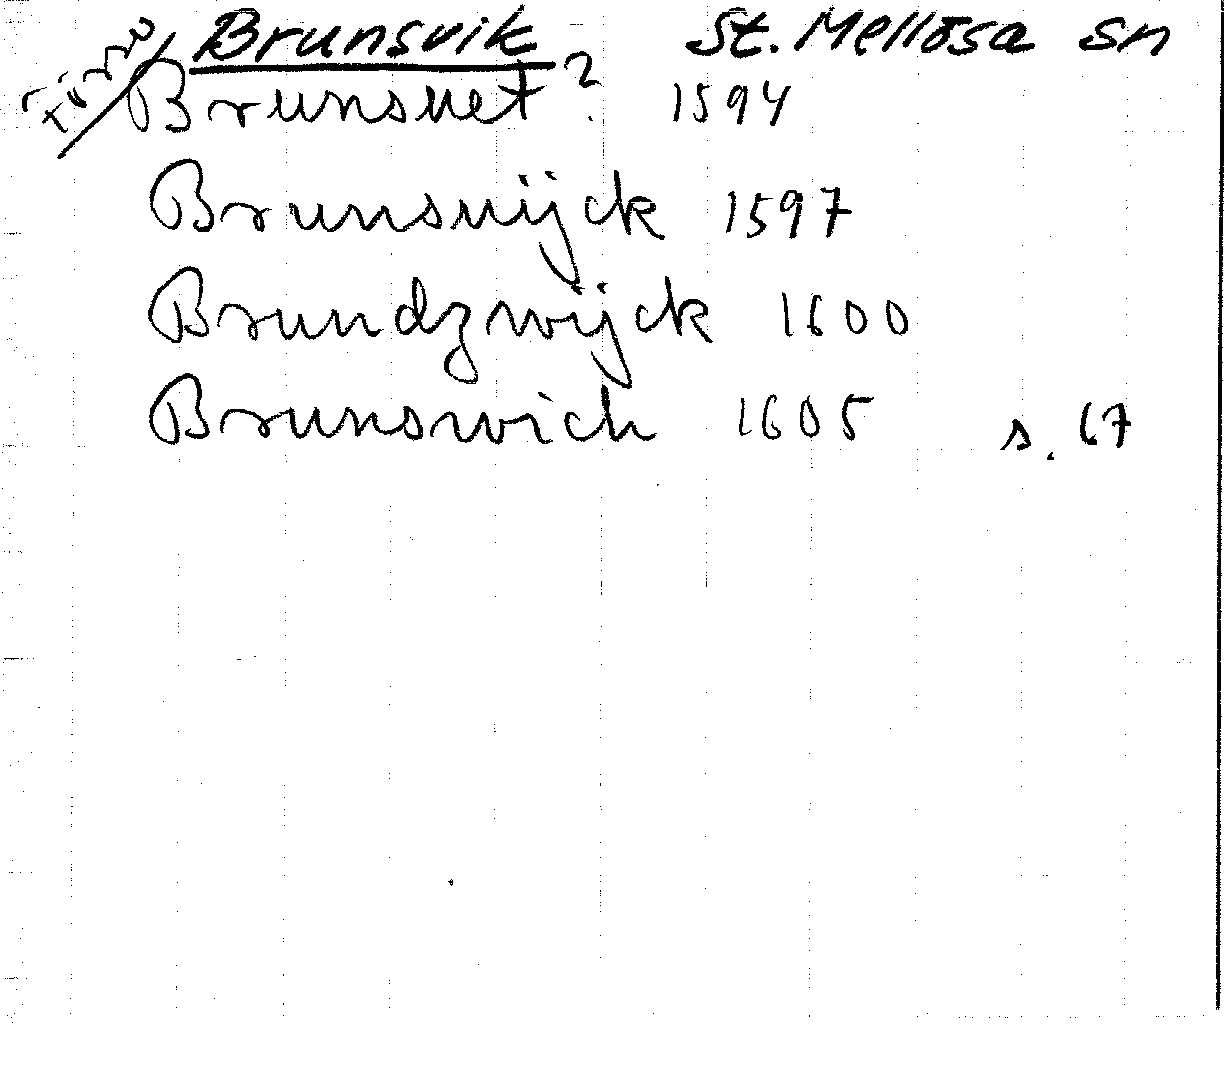 Brunsvik St. Mellösa sn
Brunsuet? 1594
Brunsuijck 1597
Brundzwijck 1600
Brunswich 1605 s. 67